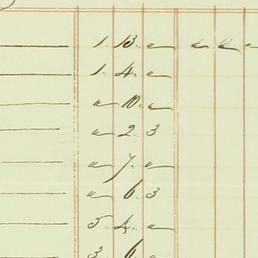 1. 13. " " " "
1. 4. "
" 10. "
" 2. 3
" 7. "
" 6. 3
5. 4. "
3. 6. "